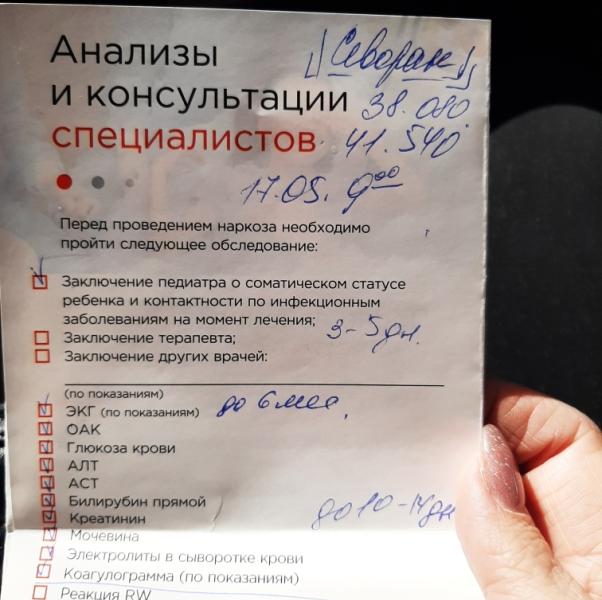 Анализы
и консультации
специалистов
"Севоран"
38.080
41.540
17.05. 9⁰⁰
Перед проведением наркоза необходимо
пройти следующее обследование:
Заключение педиатра о соматическом статусе
ребенка и контактности по инфекционным
заболеваниям на момент лечения;
3-5 дн.
Заключение терапевта;
Заключение других врачей:
(по показаниям)
ЭКГ (по показаниям) до 6 мес,
ОАК
Глюкоза крови
АЛТ
АСТ
Билирубин прямой
Креатинин до 10-14 дн
Мочевина
Электролиты в сыворотке крови
Коагулограмма (по показаниям)
Реакция RW